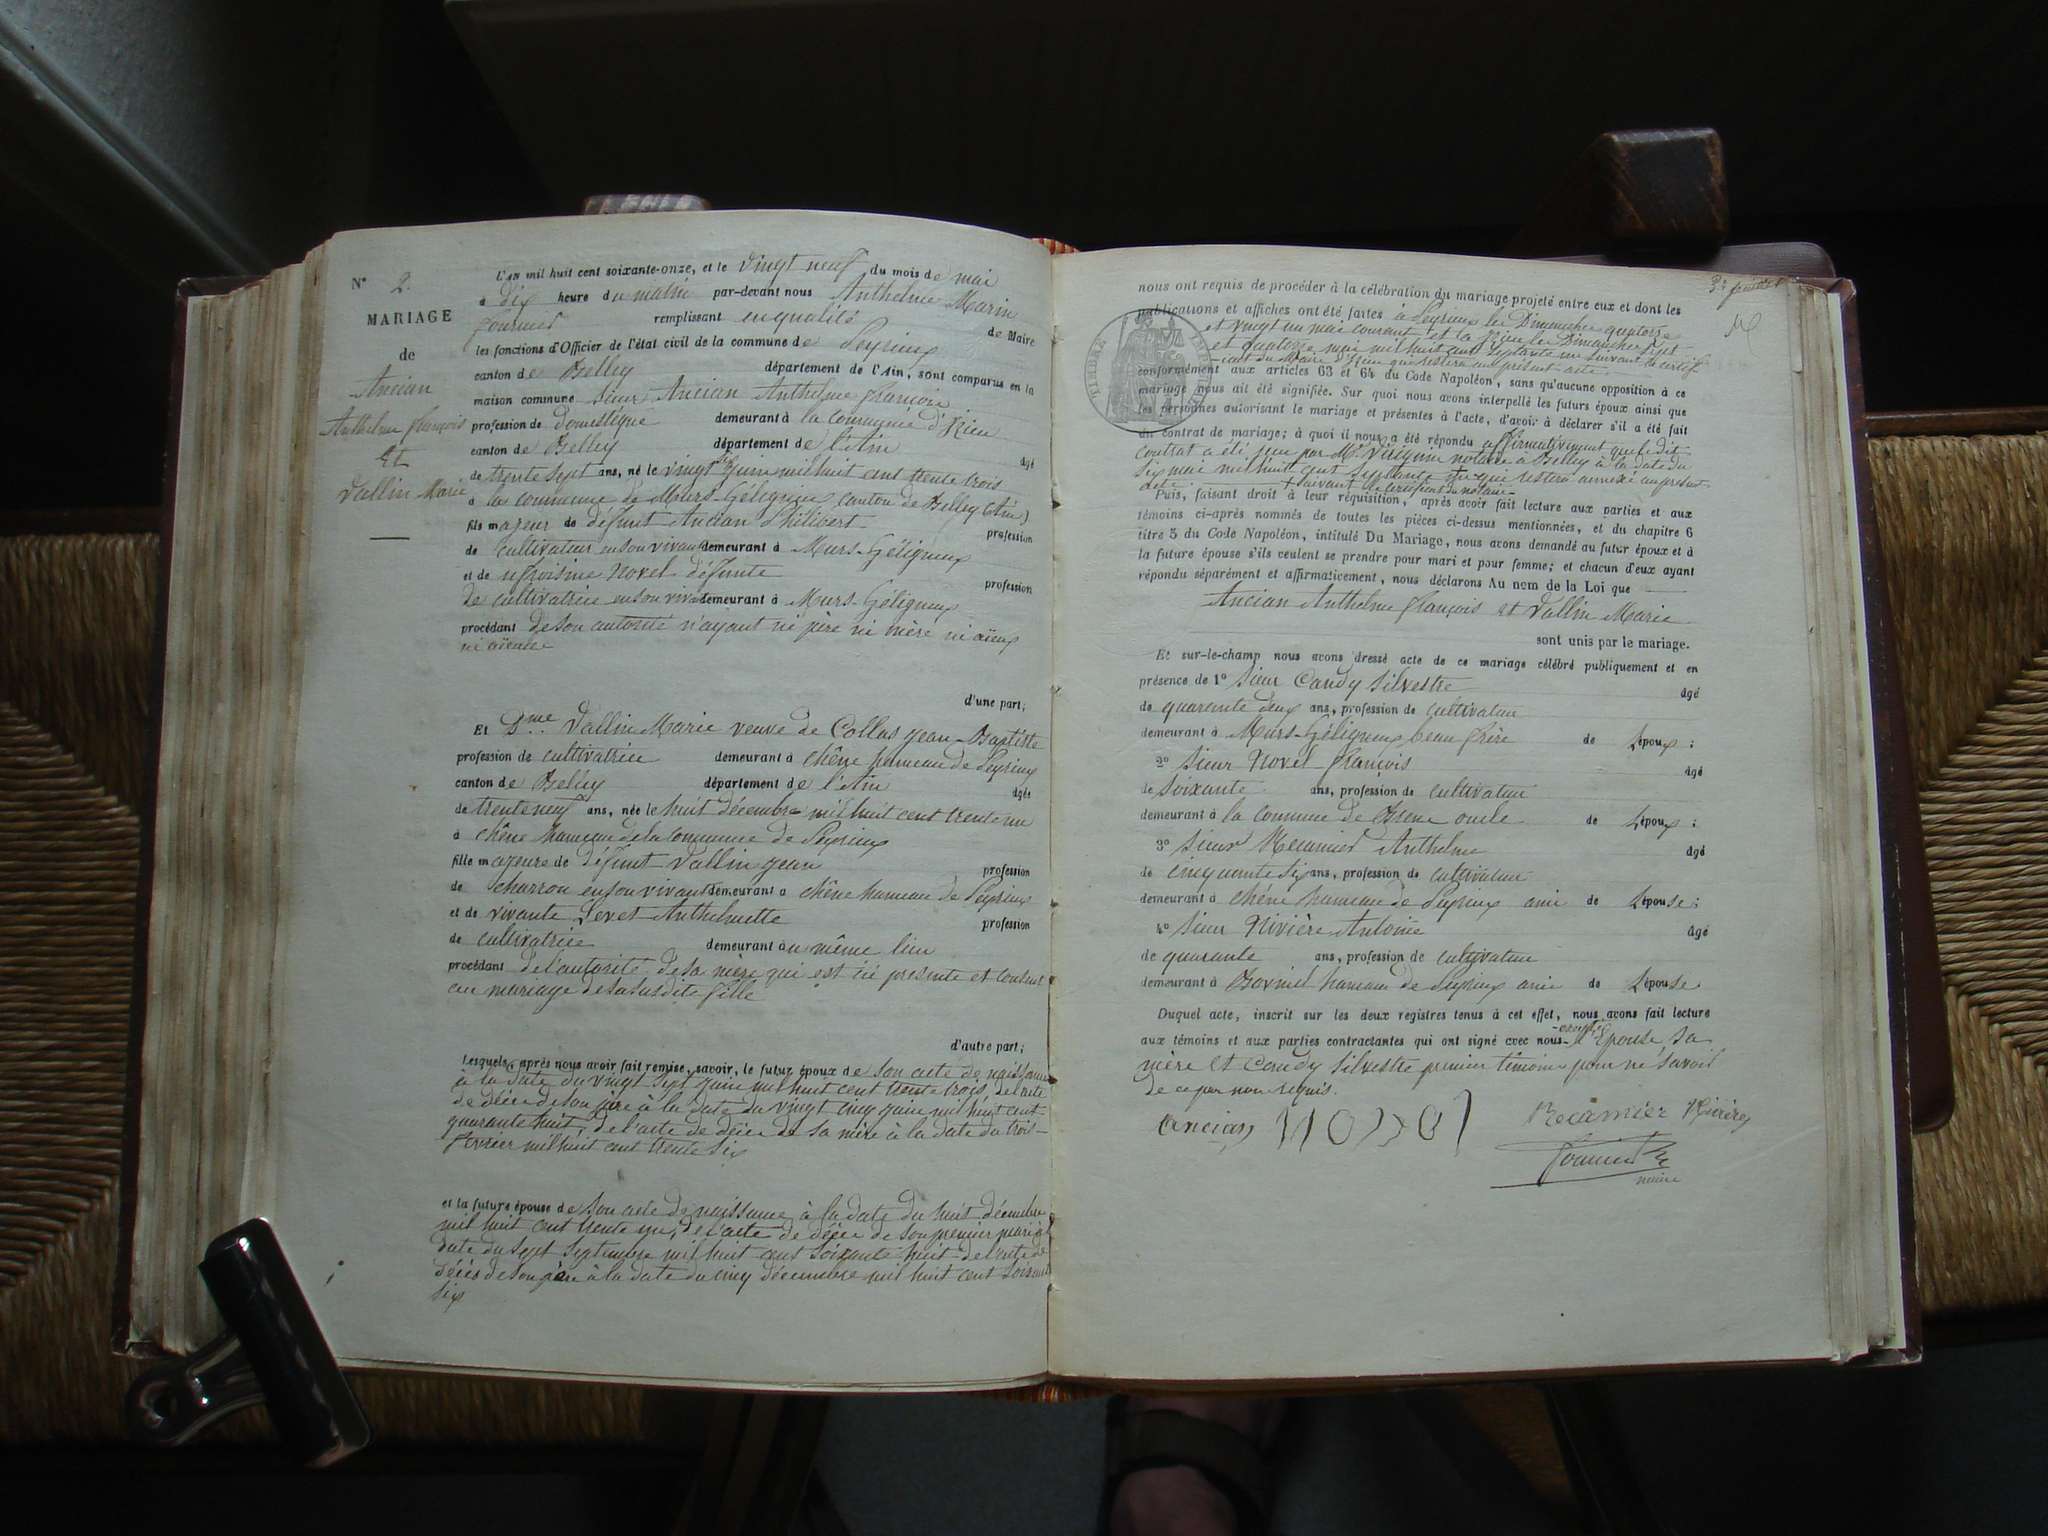 N° 2.
MARIAGE
de
Ancian
Anthelme françois
et
Vallin Marie
L'an mil huit cent soixante-onze, et le vingt neuf du mois de mai
à dix heure du matin par-devant nous Anthelme Marin
remplissant en qualité de Maire
les fonctions d'Officier de l'état civil de la commune de Peyrieux
canton de Belley département de l'Ain, sont comparus en la
maison commune sieur Ancian Anthelme françois
profession de domestique demeurant à la commune d'
canton de Belley département de l'Ain âgé
de trente sept ans, né le vingt sept juin mil huit cent trente trois
à la commune de Murs-Géligneux canton de Belley (Ain)
fils majeur de défunt Ancian Philibert profession
de cultivateur en son vivant demeurant à Murs-Géligneux
et de Novel défunte profession
de cultivatrice en son vivant demeurant à Murs-Géligneux
procédant de son autorité n'ayant ni père ni mère ni aïeux
ni aïeule
d'une part;
Et Dme Vallin Marie veuve de Collas jean-Baptiste
profession de cultivatrice demeurant à chêne hameau de Peyrieux
canton de Belley département de l'Ain âgée
de trente neuf ans, née le huit décembre mil huit cent trente un
à chêne hameau de la commune de Peyrieux
fille majeure de défunt Vallin jean profession
de charron en son vivant demeurant à chêne hameau de Peyrieux
et de vivante Anthelmette profession
de cultivatrice demeurant au même lieu
procédant de l'autorité de sa mère qui est ici présente et consent
au mariage de sa susdite fille
d'autre part;
Lesquels, après nous avoir fait remise, savoir, le futur époux de son acte de naissance
à la date du vingt sept juin mil huit cent trente trois, de l'acte
de décès de son père à la date du vingt cinq juin mil huit cent
quarante huit, de l'acte de décès de sa mère à la date du trois
février mil huit cent trente six
et la future épouse de son acte de naissance à la date du huit décembre
mil huit cent trente un, de l'acte de décès de son premier mari à la
date du sept septembre mil huit cent soixante huit de l'acte de
décès de son père à la date du cinq décembre mil huit cent soixante
six
nous ont requis de procéder à la célébration du mariage projeté entre eux et dont les
publications et affiches ont été faites à Peyrieux les Dimanches quatorze
et vingt un mai courant et à les Dimanches sept
et quatorze mai mil huit cent septante un suivant le certifi
-cat du Maire d' qui restera au présent acte
conformément aux articles 63 et 64 du Code Napoléon, sans qu'aucune opposition à ce
mariage nous ait été signifiée. Sur quoi nous avons interpellé les futurs époux ainsi que
les personnes autorisant le mariage et présentes à l'acte, d'avoir à déclarer s'il a été fait
un contrat de mariage; à quoi il nous a été répondu affirmativement que le dit
contrat a été par Me notaire à Belley à la date du
six mai mil huit cent septante un qui restera annexé au présent
acte suivant le certificat du notaire
Puis, faisant droit à leur réquisition, après avoir fait lecture aux parties et aux
témoins ci-après nommés de toutes les pièces ci-dessus mentionnées, et du chapitre 6
titre 5 du Code Napoléon, intitulé Du Mariage, nous avons demandé au futur époux et à
la future épouse s'ils veulent se prendre pour mari et pour femme; et chacun d'eux ayant
répondu séparément et affirmativement, nous déclarons Au nom de la Loi que
Ancian Anthelme françois et Vallin Marie
sont unis par le mariage.
Et sur-le-champ nous avons dressé acte de ce mariage célébré publiquement et en
présence de 1° sieur Candy Silvestre âgé
de quarante deux ans, profession de cultivateur
demeurant à Murs-Géligneux beau frère de l'époux;
2° sieur Novel françois âgé
de soixante ans, profession de cultivateur
demeurant à la commune de oncle de l'époux;
3° sieur Anthelme âgé
de cinquante six ans, profession de cultivateur
demeurant à chêne hameau de Peyrieux ami de l'épouse;
4° sieur Rivière Antoine âgé
de quarante ans, profession de cultivateur
demeurant à hameau de Peyrieux ami de l'épouse.
Duquel acte, inscrit sur les deux registres tenus à cet effet, nous avons fait lecture
aux témoins et aux parties contractantes qui ont signé avec nous excepté l'épouse, sa
mère et Candy Silvestre premier témoin pour ne savoir
de ce par nous requis.
Ancian Novel Récamier Rivière
maire